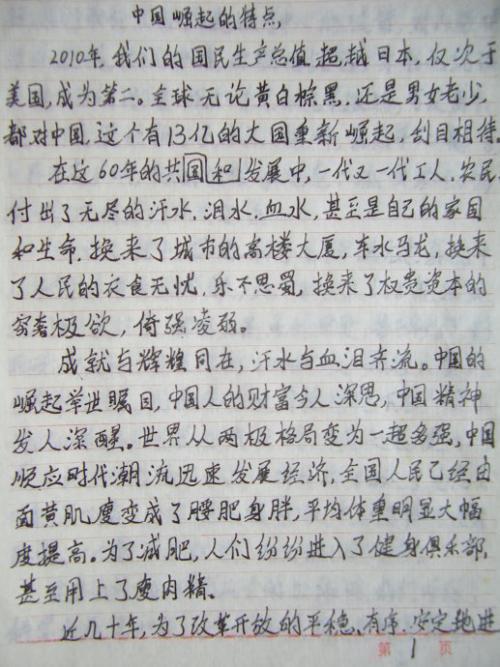 中国崛起的特点
2010年,我们的国民生产总值超越日本,仅次于
美国,成为第二。全球无论黄白棕黑,还是男女老少,
都对中国,这个有13亿的大国重新崛起,刮目相待.
在这60年的共国和发展中,一代又一代工人、农民
付出了无尽的汗水,泪水,血水,甚至是自己的家园
和生命.换来了城市的高楼大厦,车水马龙,换来
了人民的衣食无忧,乐不思蜀,换来了权贵资本的
穷奢极欲,倚强凌弱。
成就与辉煌同在,汗水与血泪齐流。中国的
崛起举世瞩目,中国人的财富令人深思,中国精神
发人深醒。世界从两极格局变为一超多强,中国
顺应时代潮流迅速发展经济,全国人民已经由
面黄肌瘦变成了腰肥身胖,平均体重明显大幅
度提高。为了减肥,人们纷纷进入了健身俱乐部,
甚至用上了瘦肉精.
近几十年,为了改革开放的平稳、有序、安定跑进
第 1 页